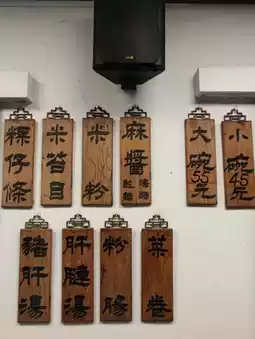 粿仔條
米苔目
米粉
麻醬
湯麵
乾麵
大碗55元
小碗45元
豬肝湯
肝腱湯
粉腸
菜卷